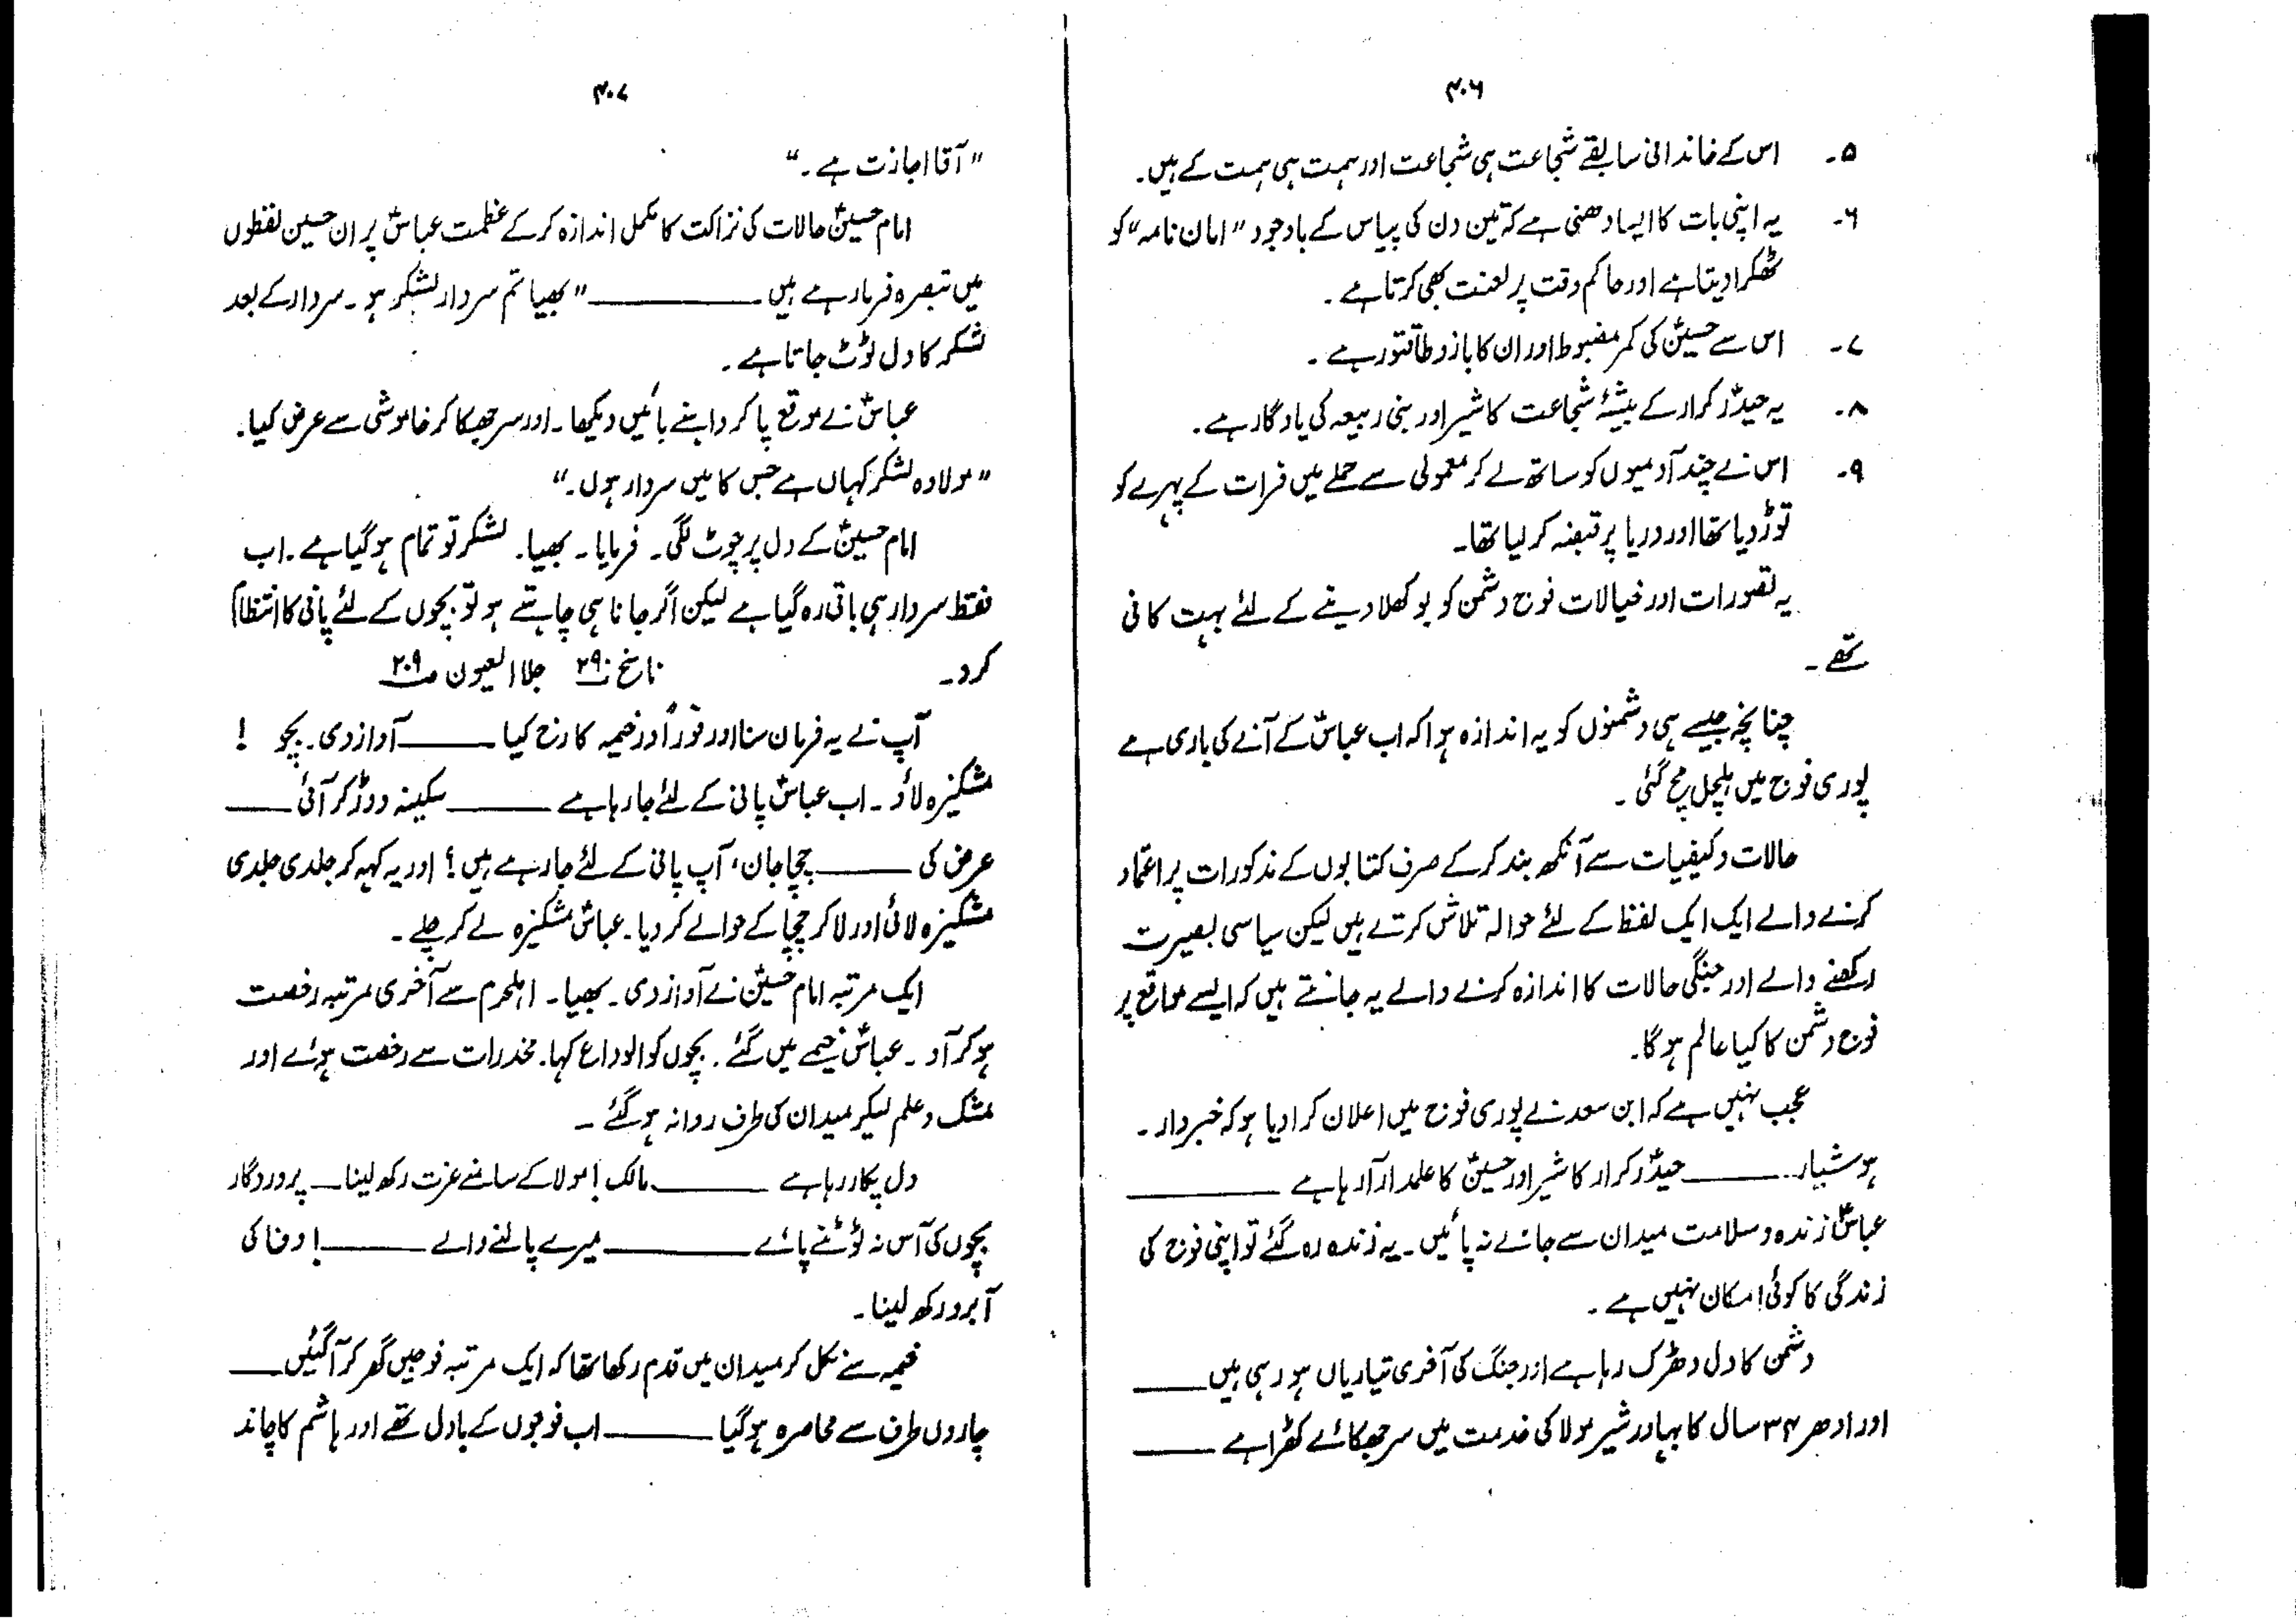 ۴۰۶
۵- اس کے خاندانی سابقے شجاعت ہی شجاعت اور ہمت ہی ہمت کے ہیں۔
۶- یہ اپنی بات کا ایسا دھنی ہے کہ تین دن کی پیاس کے باوجود "امان نامہ" کو
ٹھکرا دیتا ہے اور حاکم وقت پر لعنت بھی کرتا ہے۔
۷- اس سے حسینؑ کی کمر مضبوط اور ان کا بازو طاقتور ہے۔
۸- یہ حیدرؑ کرار کے بیشۂ شجاعت کا شیر اور بنی ربیعہ کی یادگار ہے۔
۹- اس نے چند آدمیوں کو ساتھ لے کر معمولی سے حملے میں فرات کے پہرے کو
توڑ دیا تھا اور دریا پر قبضہ کر لیا تھا۔
یہ تصورات اور خیالات فوج دشمن کو بوکھلا دینے کے لئے بہت کافی
تھے۔
چنانچہ جیسے ہی دشمنوں کو یہ اندازہ ہوا کہ اب عباسؑ کے آنے کی باری ہے
پوری فوج میں ہلچل مچ گئی۔
حالات و کیفیات سے آنکھ بند کر کے صرف کتابوں کے مذکورات پر اعتماد
کرنے والے ایک ایک لفظ کے لئے حوالہ تلاش کرتے ہیں لیکن سیاسی بصیرت
رکھنے والے اور جنگی حالات کا اندازہ کرنے والے یہ جانتے ہیں کہ ایسے مواقع پر
فوج دشمن کا کیا عالم ہوگا۔
عجب نہیں ہے کہ ابن سعد نے پوری فوج میں اعلان کرا دیا ہو کہ خبردار۔
ہوشیار ــــــــ حیدرؑ کرار کا شیر اور حسینؑ کا علمدار آ رہا ہے ــــــــ
عباسؑ زندہ و سلامت میدان سے جانے نہ پائیں۔ یہ زندہ رہ گئے تو اپنی فوج کی
زندگی کا کوئی امکان نہیں ہے۔
دشمن کا دل دھڑک رہا ہے اور جنگ کی آخری تیاریاں ہو رہی ہیں ــــــــ
اور ادھر ۳۴ سال کا بہادر شیر مولا کی خدمت میں سر جھکائے کھڑا ہے ــــــــ
۴۰۷
"آقا اجازت ہے۔"
امام حسینؑ حالات کی نزاکت کا مکمل اندازہ کر کے عظمت عباسؑ پر ان حسین لفظوں
میں تبصرہ فرما رہے ہیں ــــــــ "بھیا تم سردار لشکر ہو۔ سردار کے بعد
لشکر کا دل ٹوٹ جاتا ہے۔
عباسؑ نے موقع پا کر داہنے بائیں دیکھا۔ اور سر جھکا کر خاموشی سے عرض کیا۔
"مولا وہ لشکر کہاں ہے جس کا میں سردار ہوں۔"
امام حسینؑ کے دل پر چوٹ لگی۔ فرمایا۔ بھیا۔ لشکر تو تمام ہو گیا ہے۔ اب
فقط سردار ہی باقی رہ گیا ہے لیکن اگر جانا ہی چاہتے ہو تو بچوں کے لئے پانی کا انتظام
کرو۔ ناسخ ۲۹۰ جلاالعیون ص ۲۰۹
آپ نے یہ فرمان سنا اور فوراً در خیمہ کا رخ کیا ــــــــ آواز دی۔ بچو !
مشکیزہ لاؤ۔ اب عباسؑ پانی کے لئے جا رہا ہے ــــــــ سکینہ دوڑ کر آئی ــــــــ
عرض کی ــــــــ چچا جان، آپ پانی کے لئے جا رہے ہیں؟ اور یہ کہہ کر جلدی جلدی
مشکیزہ لائی اور لا کر چچا کے حوالے کر دیا۔ عباسؑ مشکیزہ لے کر چلے۔
ایک مرتبہ امام حسینؑ نے آواز دی۔ بھیا۔ اہلحرم سے آخری مرتبہ رخصت
ہو کر آؤ۔ عباسؑ خیمے میں گئے۔ بچوں کو الوداع کہا۔ مخدرات سے رخصت ہوئے اور
مشک و علم لیکر میدان کی طرف روانہ ہو گئے۔
دل پکار رہا ہے ــــــــ مالک! مولا کے سامنے عزت رکھ لینا ــــ پروردگار
بچوں کی آس نہ ٹوٹنے پائے ــــــــ میرے پالنے والے ــــــــ! وفا کی
آبرو رکھ لینا۔
خیمہ سے نکل کر میدان میں قدم رکھا تھا کہ ایک مرتبہ فوجیں گھر کر آ گئیں ــــــــ
چاروں طرف سے محاصرہ ہو گیا ــــــــ اب فوجوں کے بادل تھے اور ہاشم کا چاند